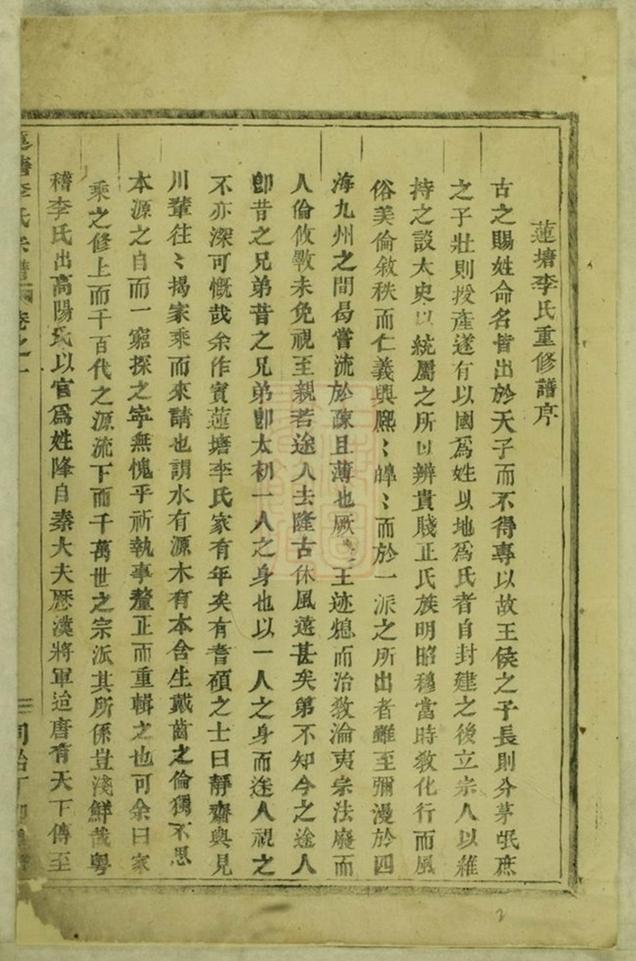 蓮塘李氏重修譜序
古之賜姓命名皆出於天子而不得專以故王侯之子長則分茅氓庶
之子壯則授產遂有以國爲姓以地爲氏者自封建之後立宗人以維
持之設太史以統屬之所以辨貴賤正氏族明昭穆當時敎化行而風
俗美倫敘秩而仁義興熈〻皡〻而於一派之所出者雖至彌漫於四
海九州之間曷嘗流於疎且薄也厥後王迹熄而治敎淪夷宗法廢而
人倫攸斁未免視至親若途人去隆古休風遠甚矣第不知今之途人
卽昔之兄弟昔之兄弟卽太初一人之身也以一人之身而途人視之
不亦深可慨哉余作賓蓮塘李氏家有年矣有耆碩之士曰靜齋與見
川輩往〻揭家乘而來請也謂水有源木有本含生戴齒之倫獨不思
本源之自而一窮探之寧無愧乎祈執事釐正而重輯之也可余曰家
乘之修上而千百代之源流下而千萬世之宗派其所係豈淺鮮哉粵
稽李氏出高陽氏以官爲姓降自秦大夫歷漢將軍迨唐有天下傳至
蓮塘李氏宗譜 卷之一 同治丁卯
2